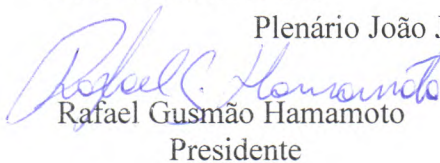 Plenário João J
Rafael G. Hamamoto
Rafael Gusmão Hamamoto
Presidente